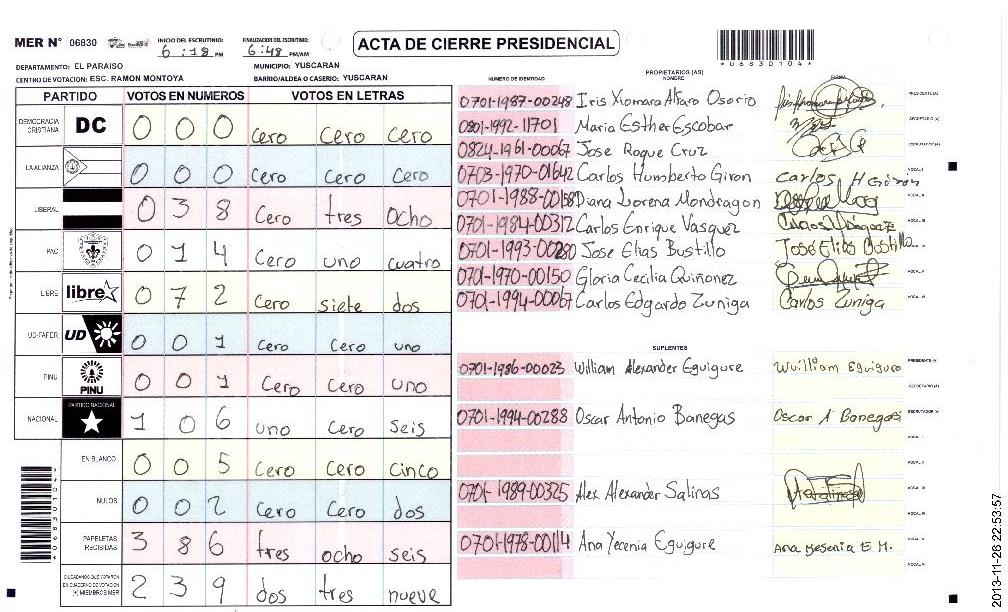 MER N° 06830
INICIO DEL ESCRUTINIO:
6 : 18 PM
FINALIZACION DEL ESCRUTINIO:
6:48 PM/AM
ACTA DE CIERRE PRESIDENCIAL
*06830104*
DEPARTAMENTO: EL PARAISO
MUNICIPIO: YUSCARAN
CENTRO DE VOTACION: ESC. RAMON MONTOYA
BARRIO/ALDEA O CASERIO: YUSCARAN
PARTIDO VOTOS EN NUMEROS VOTOS EN LETRAS
DEMOCRACIA CRISTIANA DC 0 0 0 Cero Cero Cero
LA ALIANZA 0 0 0 Cero Cero Cero
LIBERAL 0 3 8 Cero tres ocho
PAC 0 1 4 Cero uno cuatro
LIBRE libre 0 7 2 Cero siete dos
UD-FAPER UD 0 0 1 Cero Cero uno
PINU PINU 0 0 1 Cero Cero uno
NACIONAL PARTIDO NACIONAL 1 0 6 uno Cero seis
EN BLANCO 0 0 5 Cero Cero Cinco
NULOS 0 0 2 Cero Cero dos
PAPELETAS RECIBIDAS 3 8 6 tres ocho seis
CIUDADANOS QUE VOTARON EN CUADERNO DE VOTACION (+) MIEMBROS MER 2 3 9 dos tres nueve
*06830104*
PROPIETARIOS (AS)
NUMERO DE IDENTIDAD NOMBRE FIRMA
0701-1987-00248 Iris Xiomara Alfaro Osorio PRESIDENTE (A)
0801-1992-11701 Maria Esther Escobar SECRETARIO (A)
0824-1961-00067 Jose Roque Cruz ESCRUTADOR (A)
0703-1970-01642 Carlos Humberto Giron Carlos H Girón VOCAL I
0701-1988-00158 Diana Lorena Mondragon VOCAL II
0701-1984-00312 Carlos Enrique Vasquez VOCAL III
0701-1993-00280 Jose Elias Bustillo José Elias Bustillo
0701-1970-00150 Gloria Cecilia Quiñonez VOCAL V
0701-1994-00067 Carlos Edgardo Zuniga Carlos Zuniga VOCAL VI
SUPLENTES
0701-1986-00023 William Alexander Eguigure Wuilliam Eguigure PRESIDENTE (A)
SECRETARIO (A)
0701-1994-00288 Oscar Antonio Banegas Oscar A Banegas ESCRUTADOR (A)
VOCAL I
VOCAL II
0701-1989-00325 Alex Alexander Salinas VOCAL III
VOCAL IV
0701-1978-00114 Ana Yecenia Eguigure Ana Yesenia E M. VOCAL V
VOCAL VI
2013-11-26 22:53:57